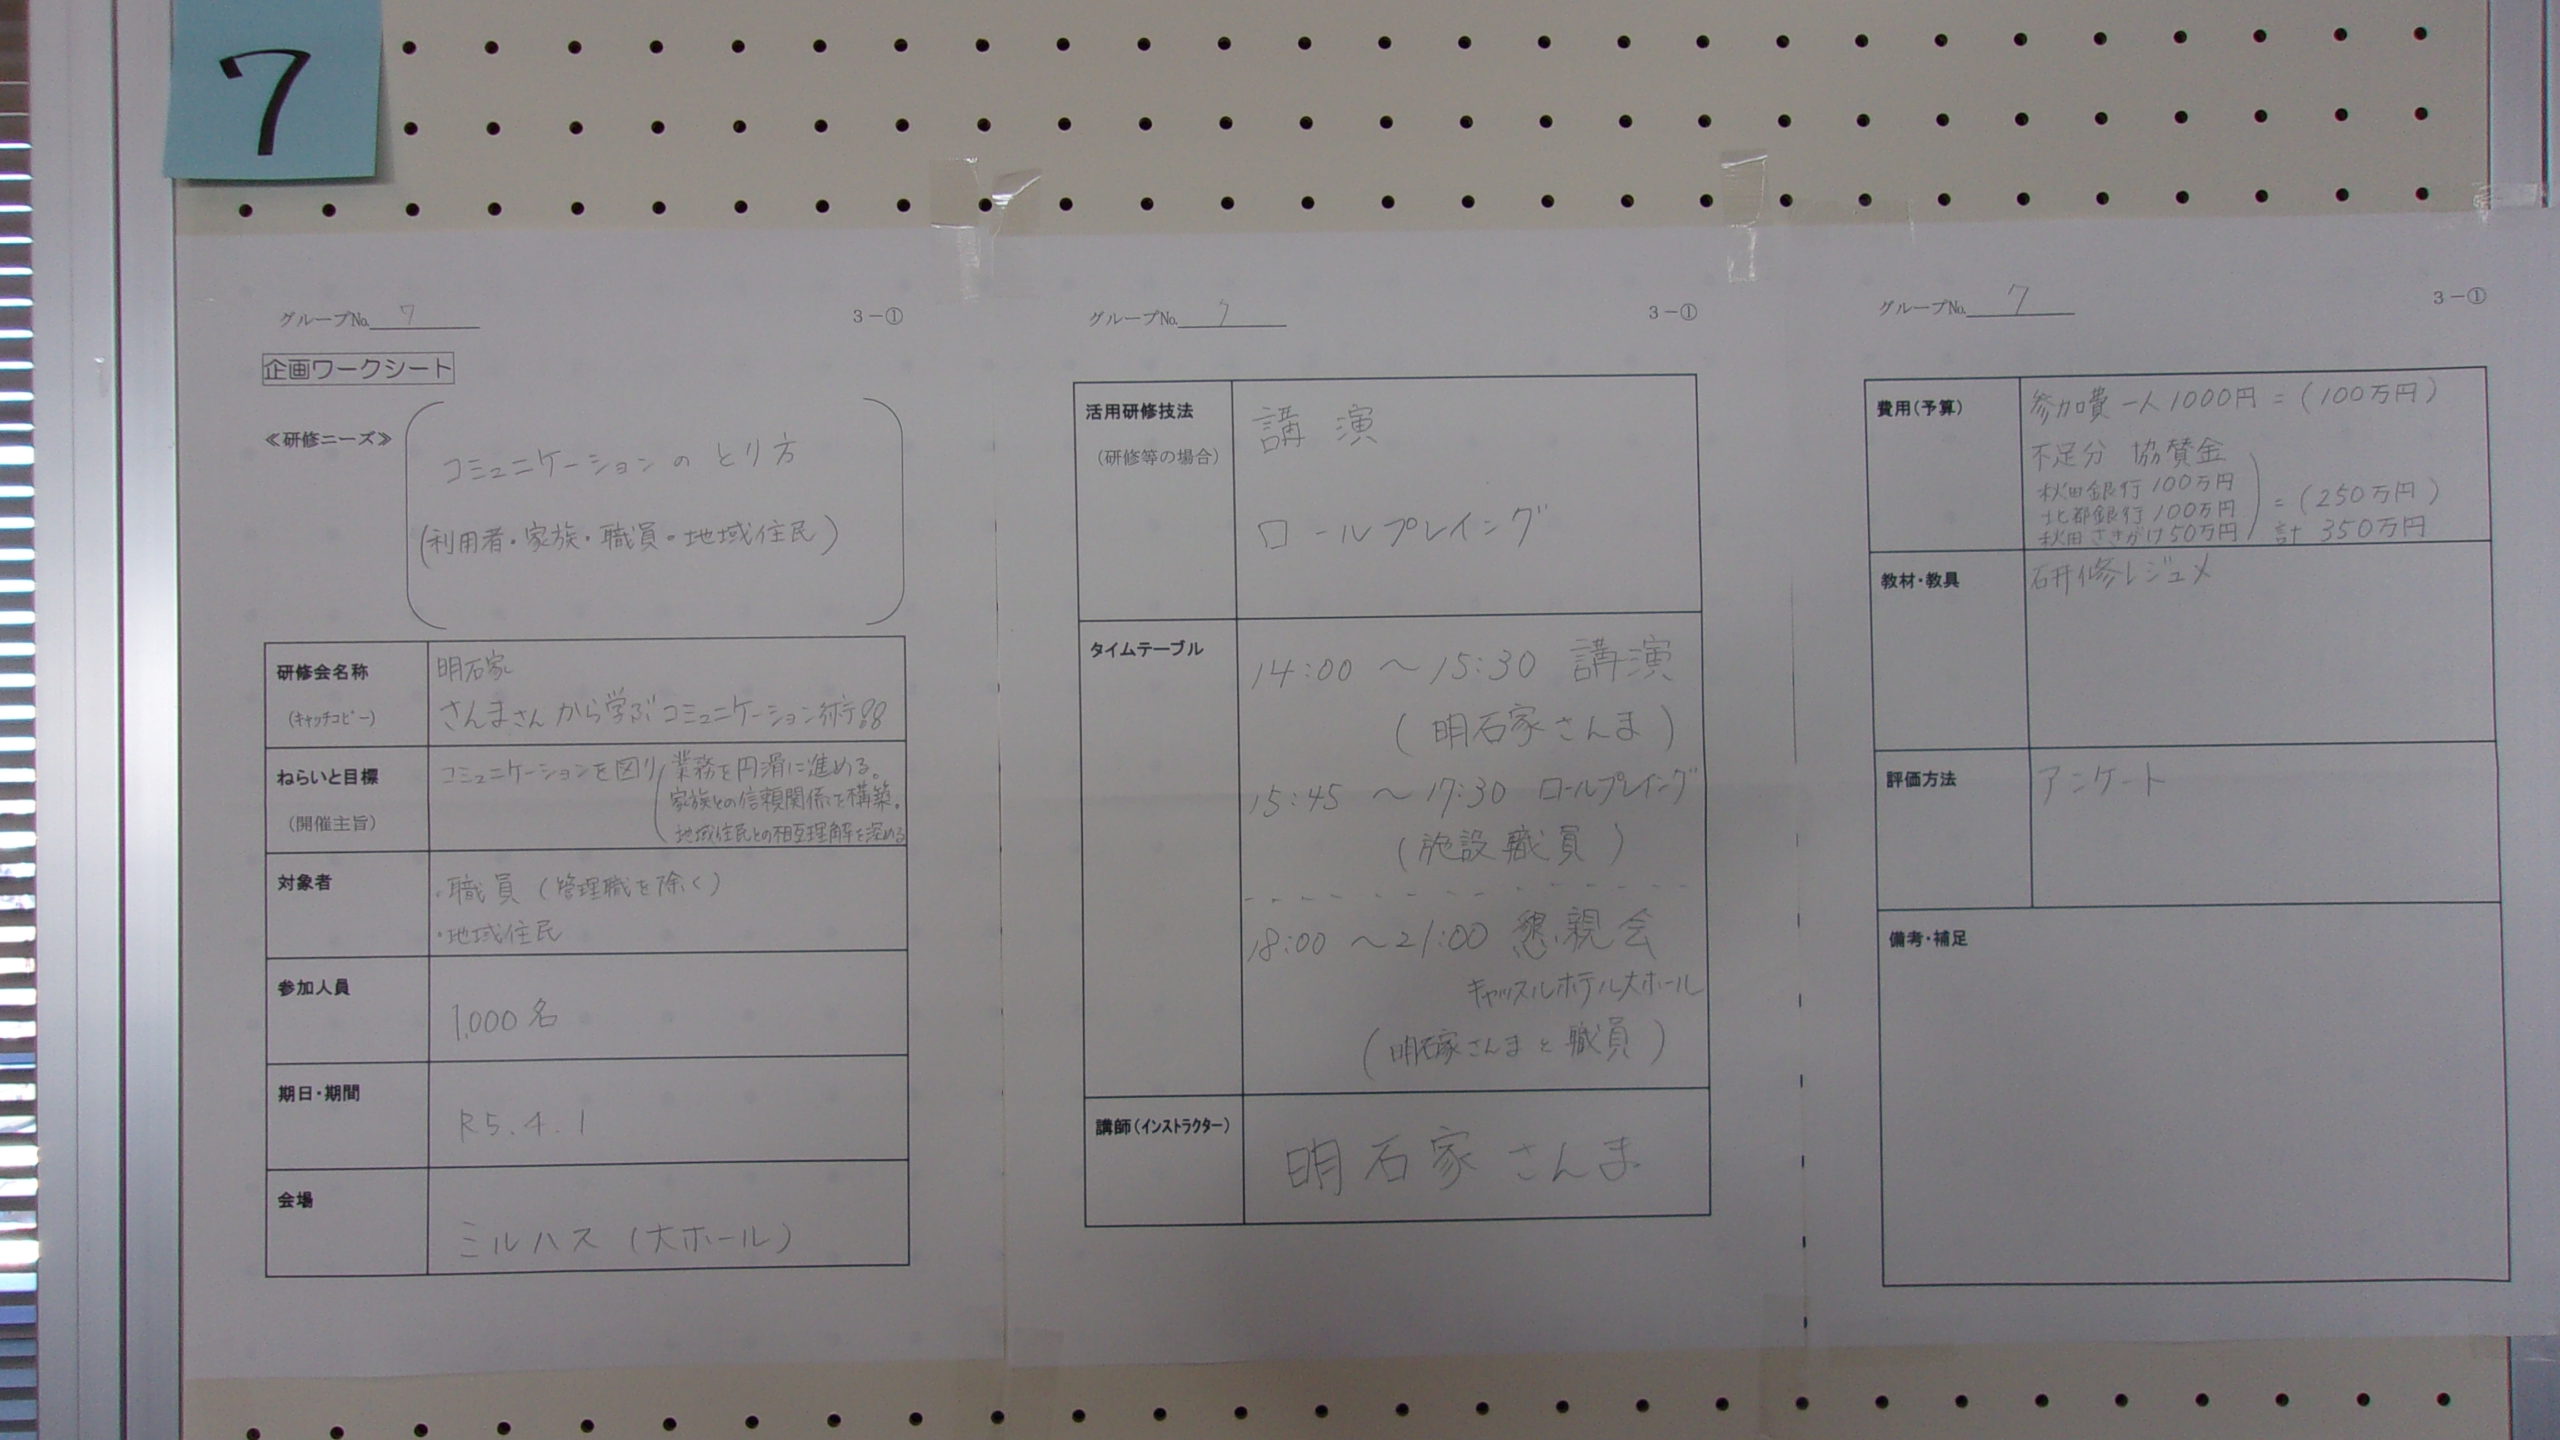 7
グループNo. 7
3－①
企画ワークシート
≪研修ニーズ≫
コミュニケーションの とり方
(利用者・家族・職員・地域住民)
研修会名称
(キャッチコピー)
明石家
さんまさんから学ぶコミュニケーション術!!
ねらいと目標
(開催主旨)
コミュニケーションを図り
業務を円滑に進める。
家族との信頼関係を構築。
地域住民との相互理解を深める
対象者
・職員(管理職を除く)
・地域住民
参加人員
1,000名
期日・期間
R5.4.1
会場
ミルハス(大ホール)
グループNo. 7
3－①
活用研修技法
(研修等の場合)
講演
ロールプレイング
タイムテーブル
14:00 ～15:30 講演
(明石家さんま)
15:45 ～17:30 ロールプレイング
(施設職員)
18:00 ～21:00 懇親会
キャッスルホテル大ホール
(明石家さんまと職員)
講師(インストラクター)
明石家さんま
グループNo. 7
3－①
費用(予算)
参加費 一人1000円=(100万円)
不足分 協賛金
秋田銀行100万円
北都銀行100万円
秋田さきがけ50万円
=(250万円)
計 350万円
教材・教具
研修レジュメ
評価方法
アンケート
備考・補足